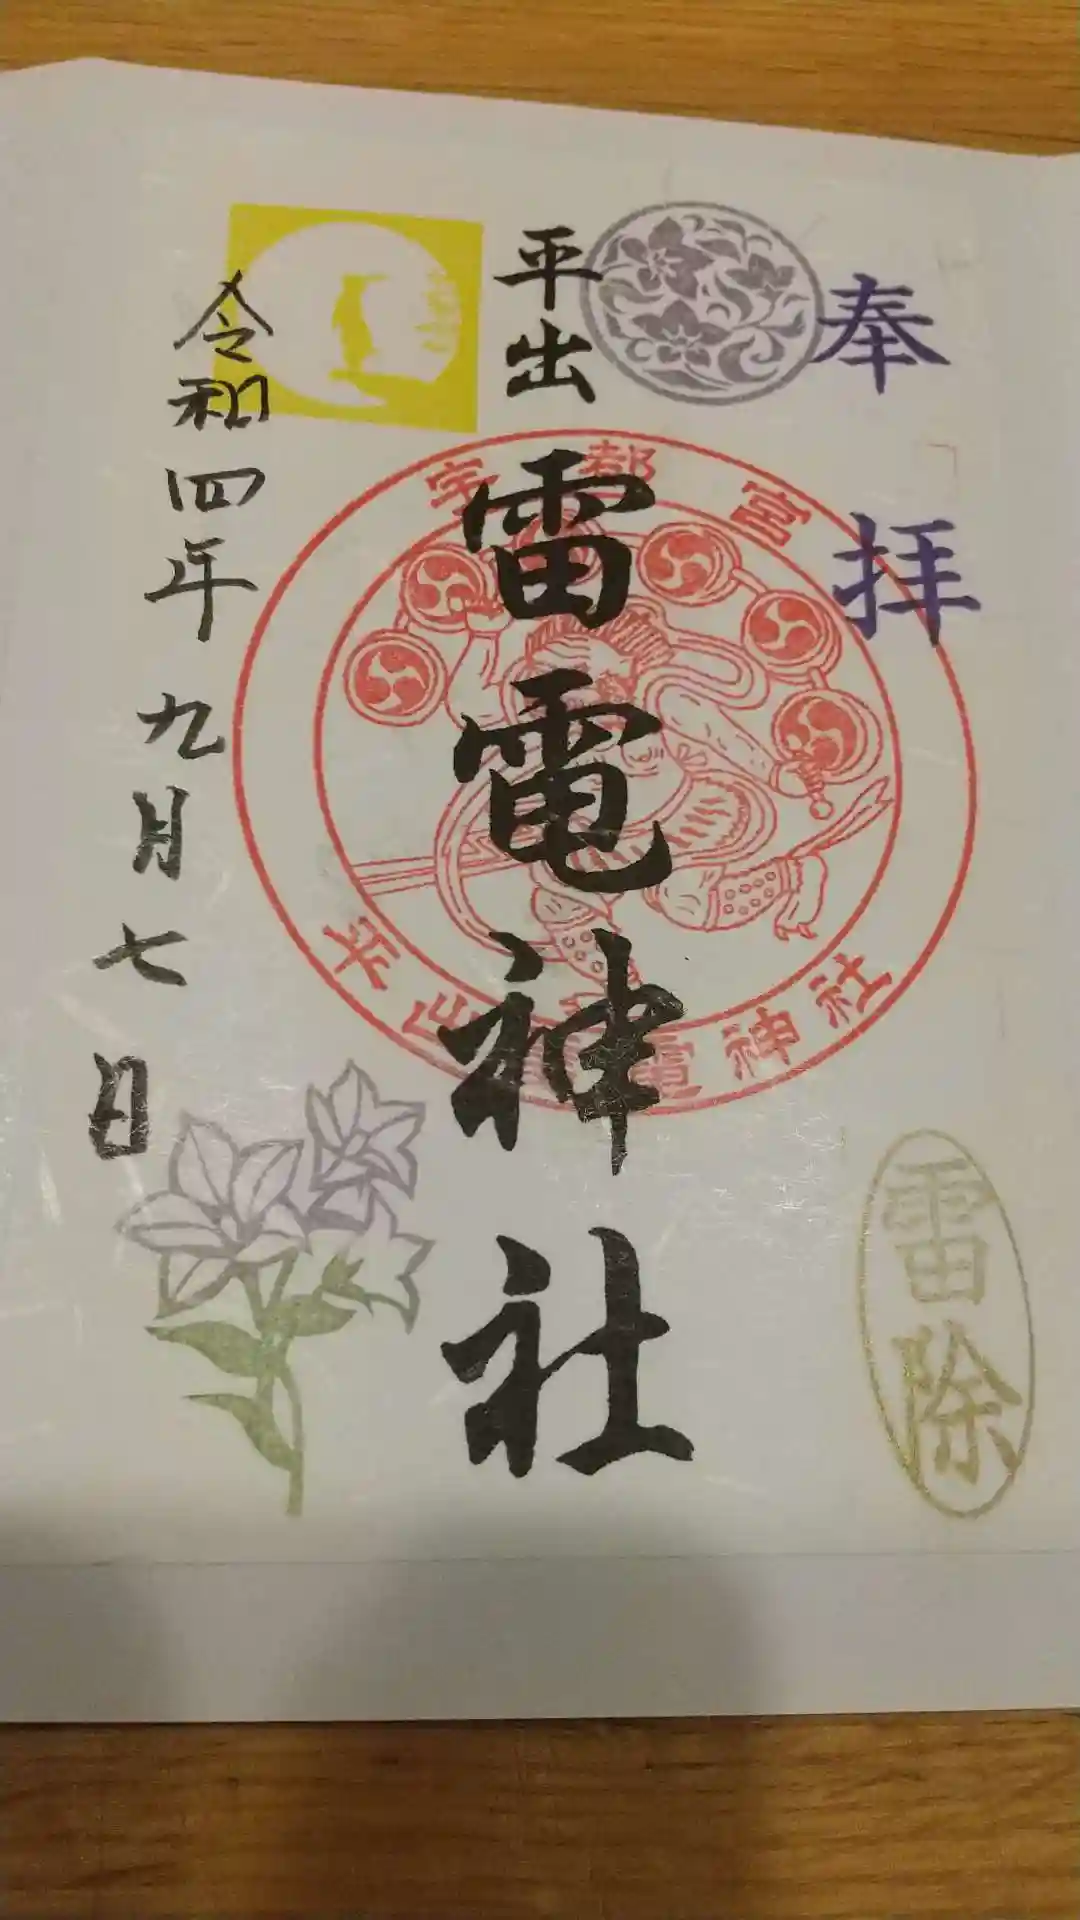 奉拝
平出
雷電神社
宇都宮
平出雷電神社
雷除
令和四年九月七日